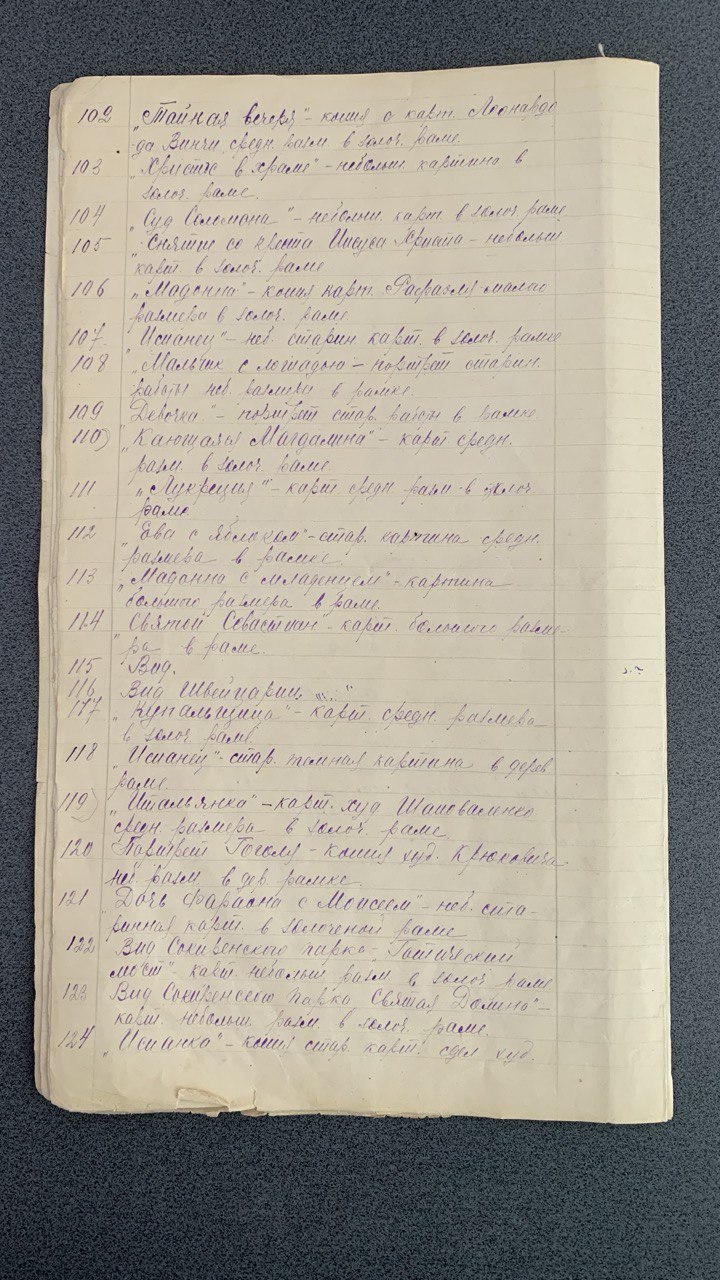 102 „Тайная вечеря" - копия с карт. Леонардо
да Винчи средн. разм. в золоч. раме.
103 „Христос в храме" - небольш. картина в
золоч. раме.
104 „Суд Соломона" - небольш. карт. в золоч. раме
105 „Снятие со креста Иисуса Христа - небольш.
карт. в золоч. раме
106 „Мадонна" - копия карт. Рафаэля малого
размера в золоч. раме
107. „Испанец" - неб. старин. карт. в золоч. рамке
108 „Мальчик с лошадью - портрет старин.
работы неб. размера в рамке.
109 „Девочка" - портрет стар. работы в рамке
110) „Кающаяся Магдалина" - карт. средн.
разм. в золоч. раме.
111 „Лукреция" - карт. средн. разм. в золоч.
раме
112 „Ева с яблоком" - стар. картина средн.
размера в рамке.
113 „Мадонна с младенцем" - картина
большого размера в раме.
114 „Святой Себастиан" - карт. большого разме-
ра в раме.
115 Вид.
116 Вид Швейцарии „....."
117 „Купальщица" - карт. средн. размера
в золоч. раме
118 „Испанец" - стар. темная картина в дерев.
раме.
119) „Итальянка" - карт. худ. Шаповаленко
средн. размера в золоч. раме
120 Портрет Гоголя - копия худ. Крюковича
неб. разм. в дер. рамке.
121 „Дочь фараона с Моисеем" - неб. ста-
ринная карт. в золоченой раме
122 Вид Сокиренского парка „Готический
мост" - карт. небольш. разм. в золоч. раме
123 Вид Сокиренского парка „Святая Долина" -
карт. небольш. разм. в золоч. раме.
124 „Испанка" - копия стар. карт. сдел. худ.